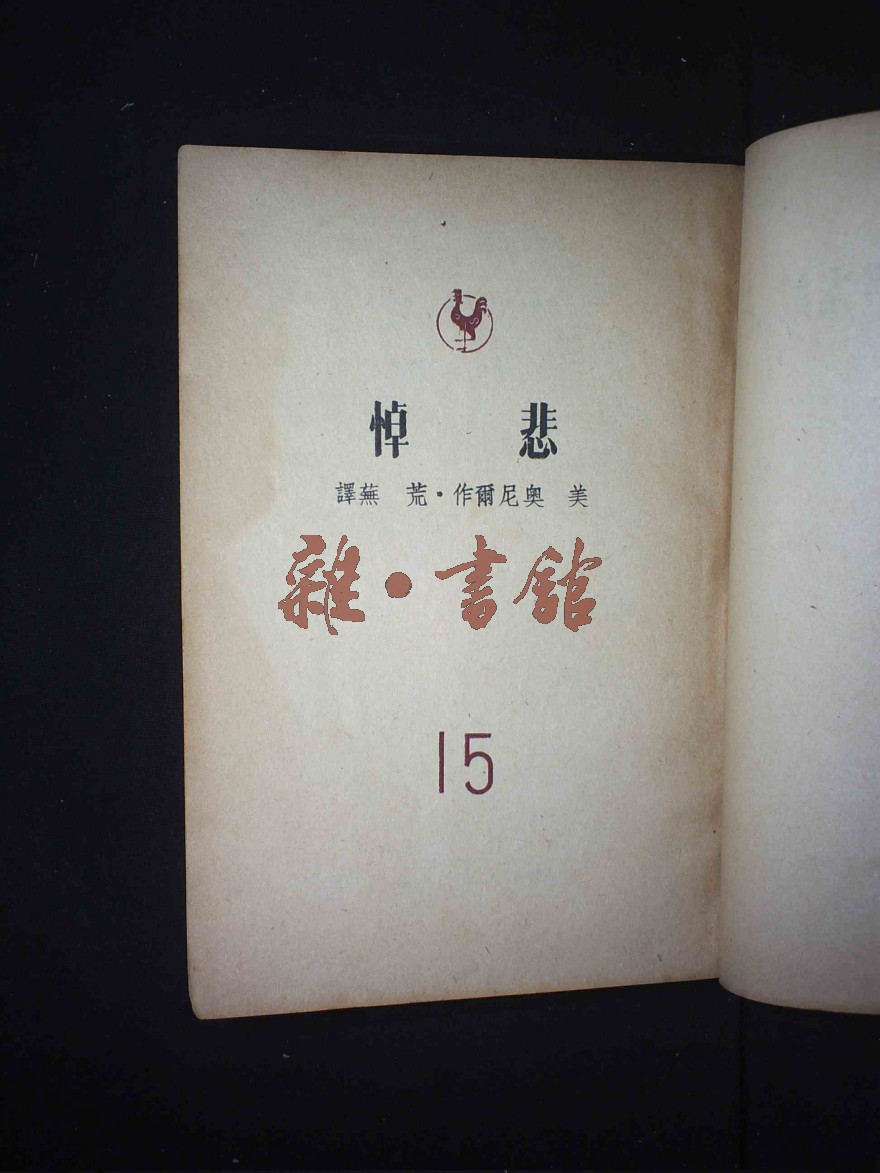 悲 悼
美 奥尼爾作・荒 蕪譯
雜・書館
15